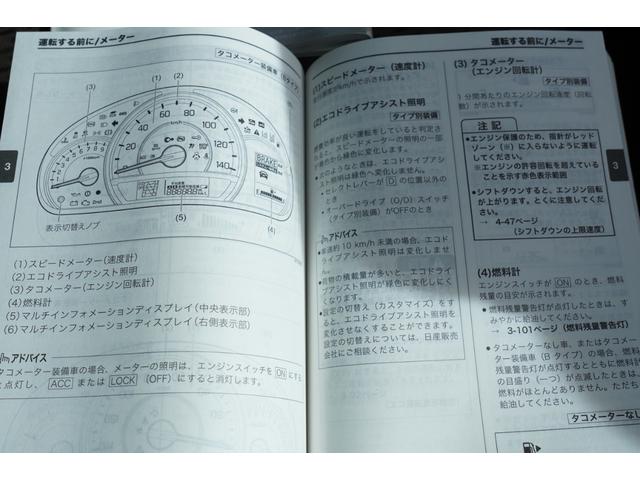 運転する前に/メーター
タコメーター装備車(Bタイプ)
(1)
(2)
(3)
20
40
60
80
100
120
140
BRAKE
(4)
(5)
表示切替えノブ
3
(1)スピードメーター(速度計)
(2)エコドライブアシスト照明
(3)タコメーター(エンジン回転計)
(4)燃料計
(5)マルチインフォメーションディスプレイ(中央表示部)
(6)マルチインフォメーションディスプレイ(右側表示部)
アドバイス
タコメーター装備車の場合、メーターの照明は、エンジンスイッチを ON にする
と点灯し、 ACC または LOCK (OFF)にすると消灯します。
運転する前に/メーター
(1)スピードメーター(速度計)
(2)エコドライブアシスト照明
タイプ別装備
燃費効率が良い運転をしていると判定さ
れると、スピードメーターの照明の一部
が青から緑色に変化します。
次のようなときは、エコドライブアシ
スト照明は緑色へ変化しません。
• セレクトレバーが D の位置以外の
とき
• オーバードライブ(O/D)スイッチ
(タイプ別装備)がOFFのとき
アドバイス
•車速約10 km/h未満の場合、エコド
ライブアシスト照明は変化しませ
ん。
•荷物の積載量が多いと、エコドライ
ブアシスト照明が緑色に変化しにく
くなります。
•設定の切替え(カスタマイズ)をす
ると、エコドライブアシスト照明を
変化させなくすることができます。
設定の切替えについては、日産販売
会社にご相談ください。
(3)タコメーター
(エンジン回転計)
タイプ別装備
1分間あたりのエンジン回転速度(回転
数)が示されます。
注記
•エンジン保護のため、指針がレッド
ゾーン(※)に入らないように運転
してください。
※エンジンの許容回転を超えているこ
とを示す赤色表示範囲
•シフトダウンすると、エンジン回転
が上がります。とくに注意してくだ
さい。
→ 4-47ページ
(シフトダウンの上限速度)
3
(4)燃料計
エンジンスイッチが ON のとき、燃料
残量の目安が示されます。
• 燃料残量警告灯が点灯したときは、す
みやかに給油してください。
→ 3-101ページ(燃料残量警告灯)
• タコメーターなし車、またはタコメー
ター装備車(Bタイプ)の場合、燃料
残量警告灯が点灯するとともに燃料計
の目盛り(一つ)が点滅したときは、
燃料がほとんどありません。ただちに
給油してください。
タコメーターなし